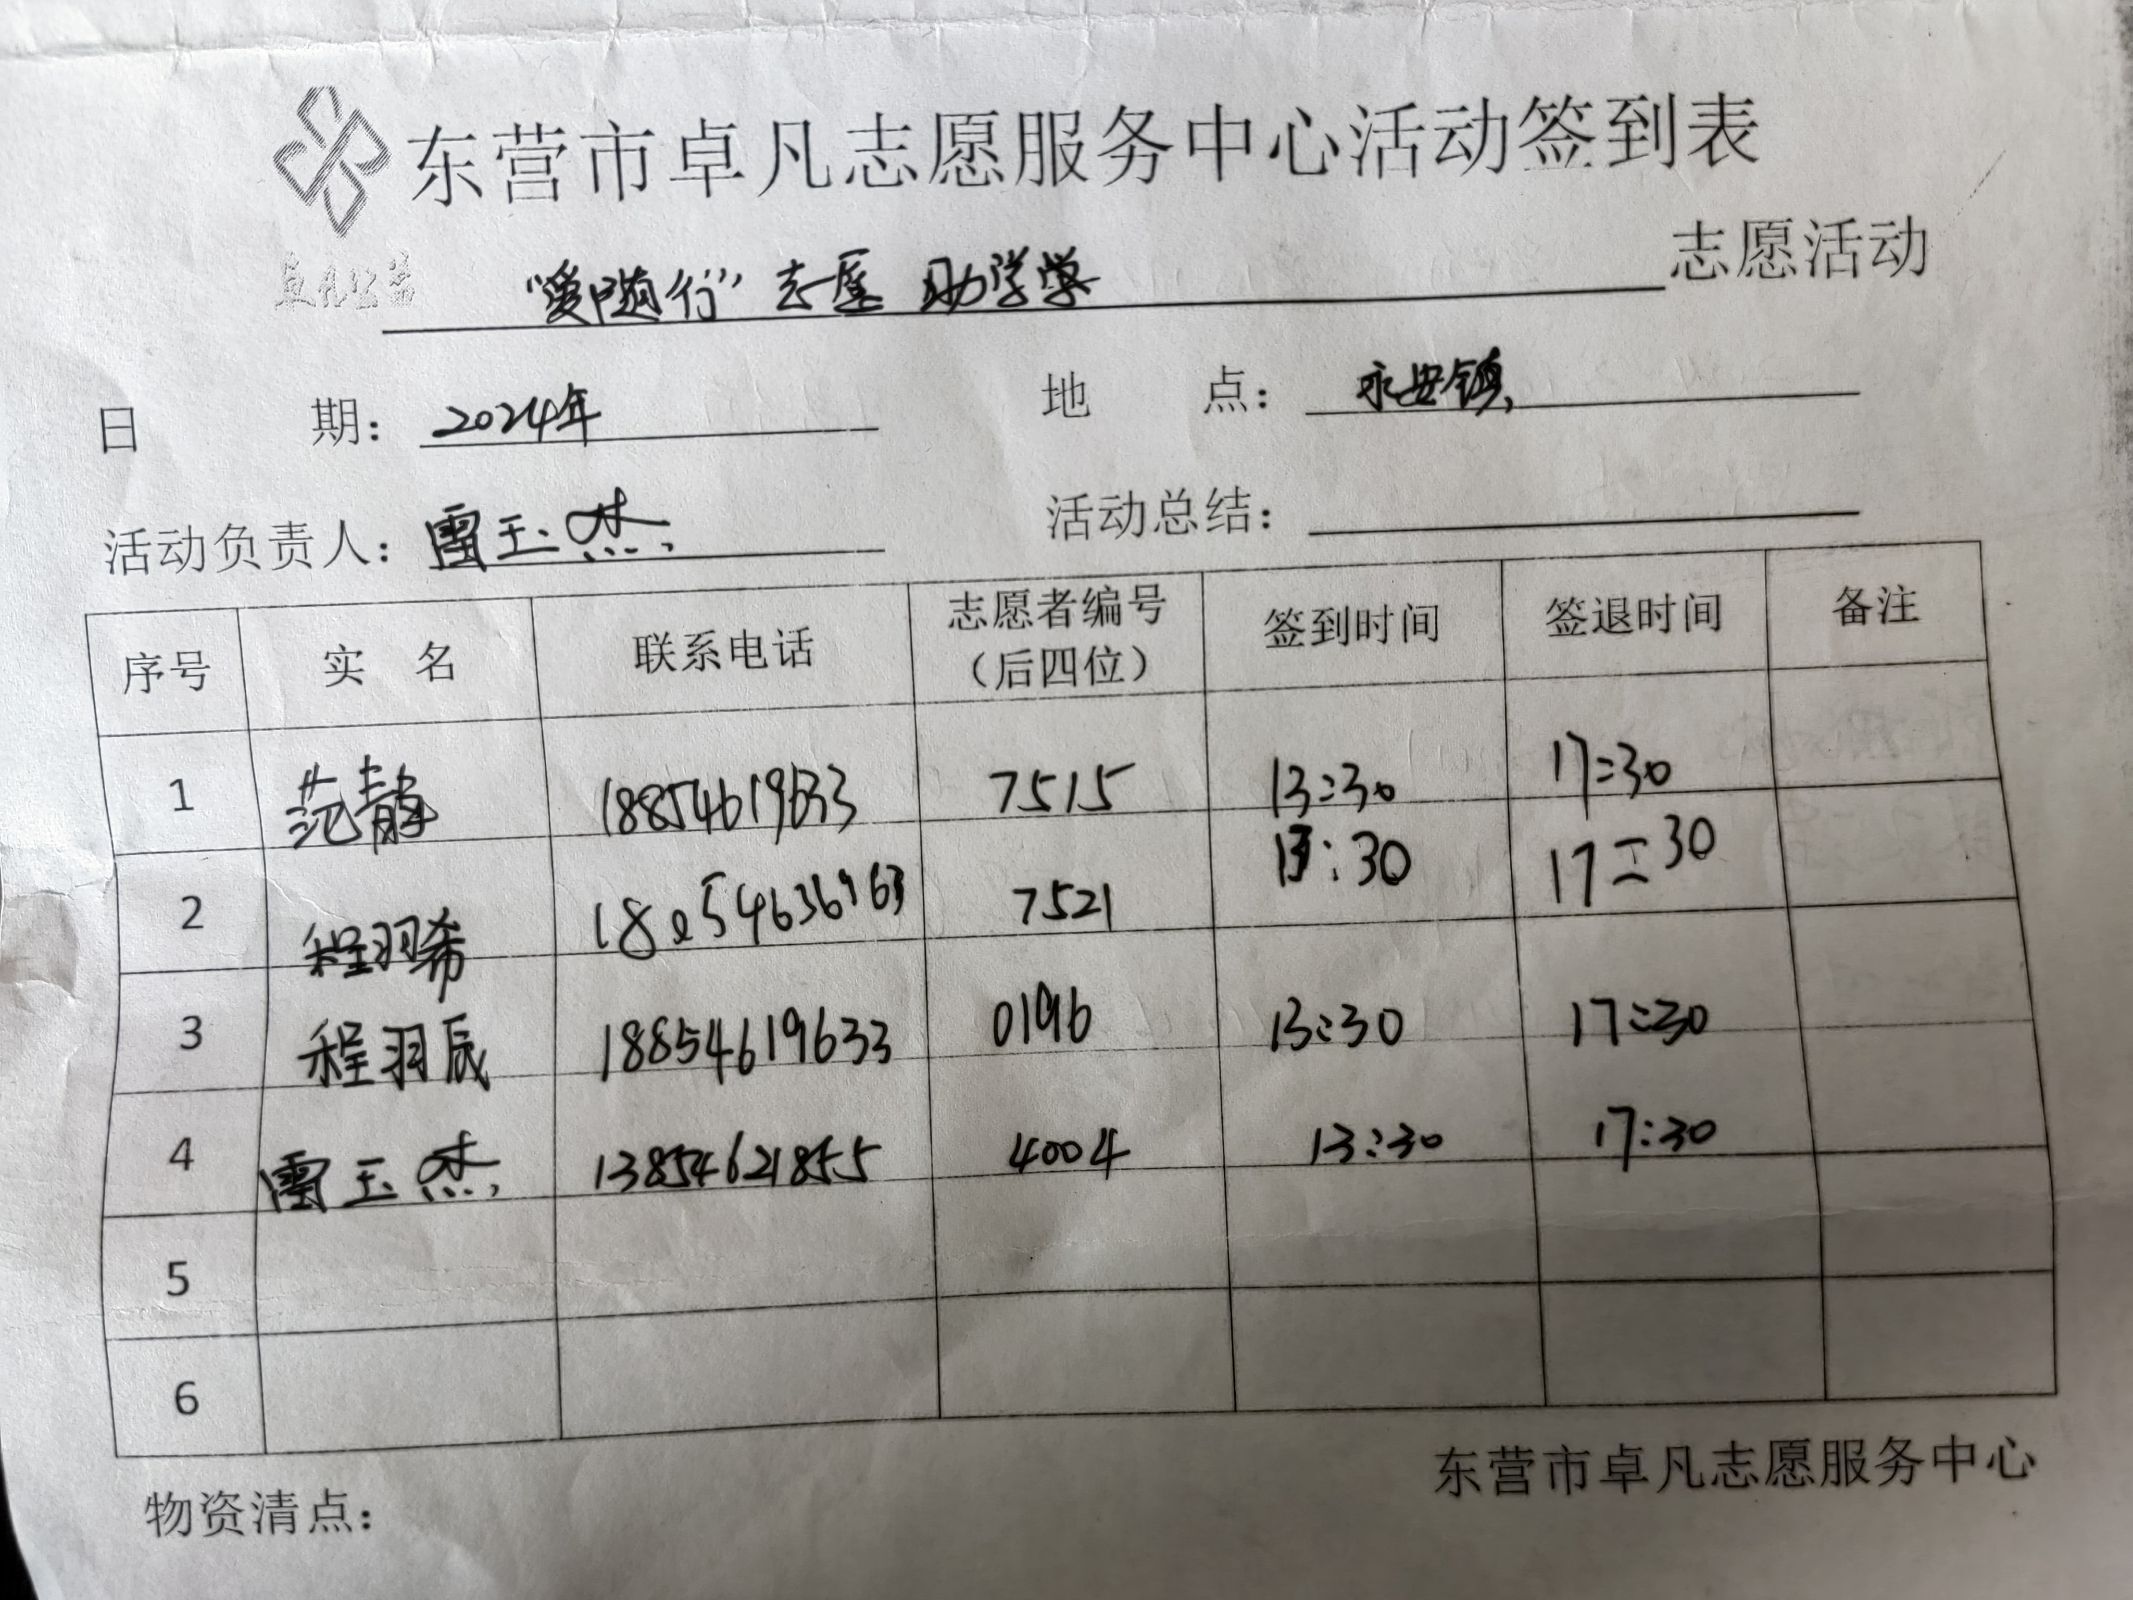 东营市卓凡志愿服务中心活动签到表
卓凡公益
“爱随行”志愿 助学 志愿活动
日 期： 2024年 地 点： 永安镇
活动负责人： 雷玉杰 活动总结：
序号 实 名 联系电话 志愿者编号（后四位） 签到时间 签退时间 备注
1 范静 18854619633 7515 13:30 17:30
2 程羽希 7521 13:30 17:30
3 程羽辰 18854619633 0196 13:30 17:30
4 雷玉杰 13854621855 4004 13:30 17:30
5
6
东营市卓凡志愿服务中心
物资清点：